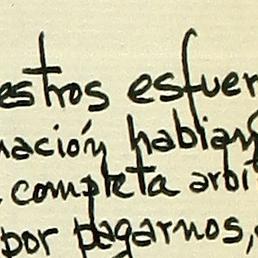 estros esfuer
nación habían
completa arbi
por pagarnos,